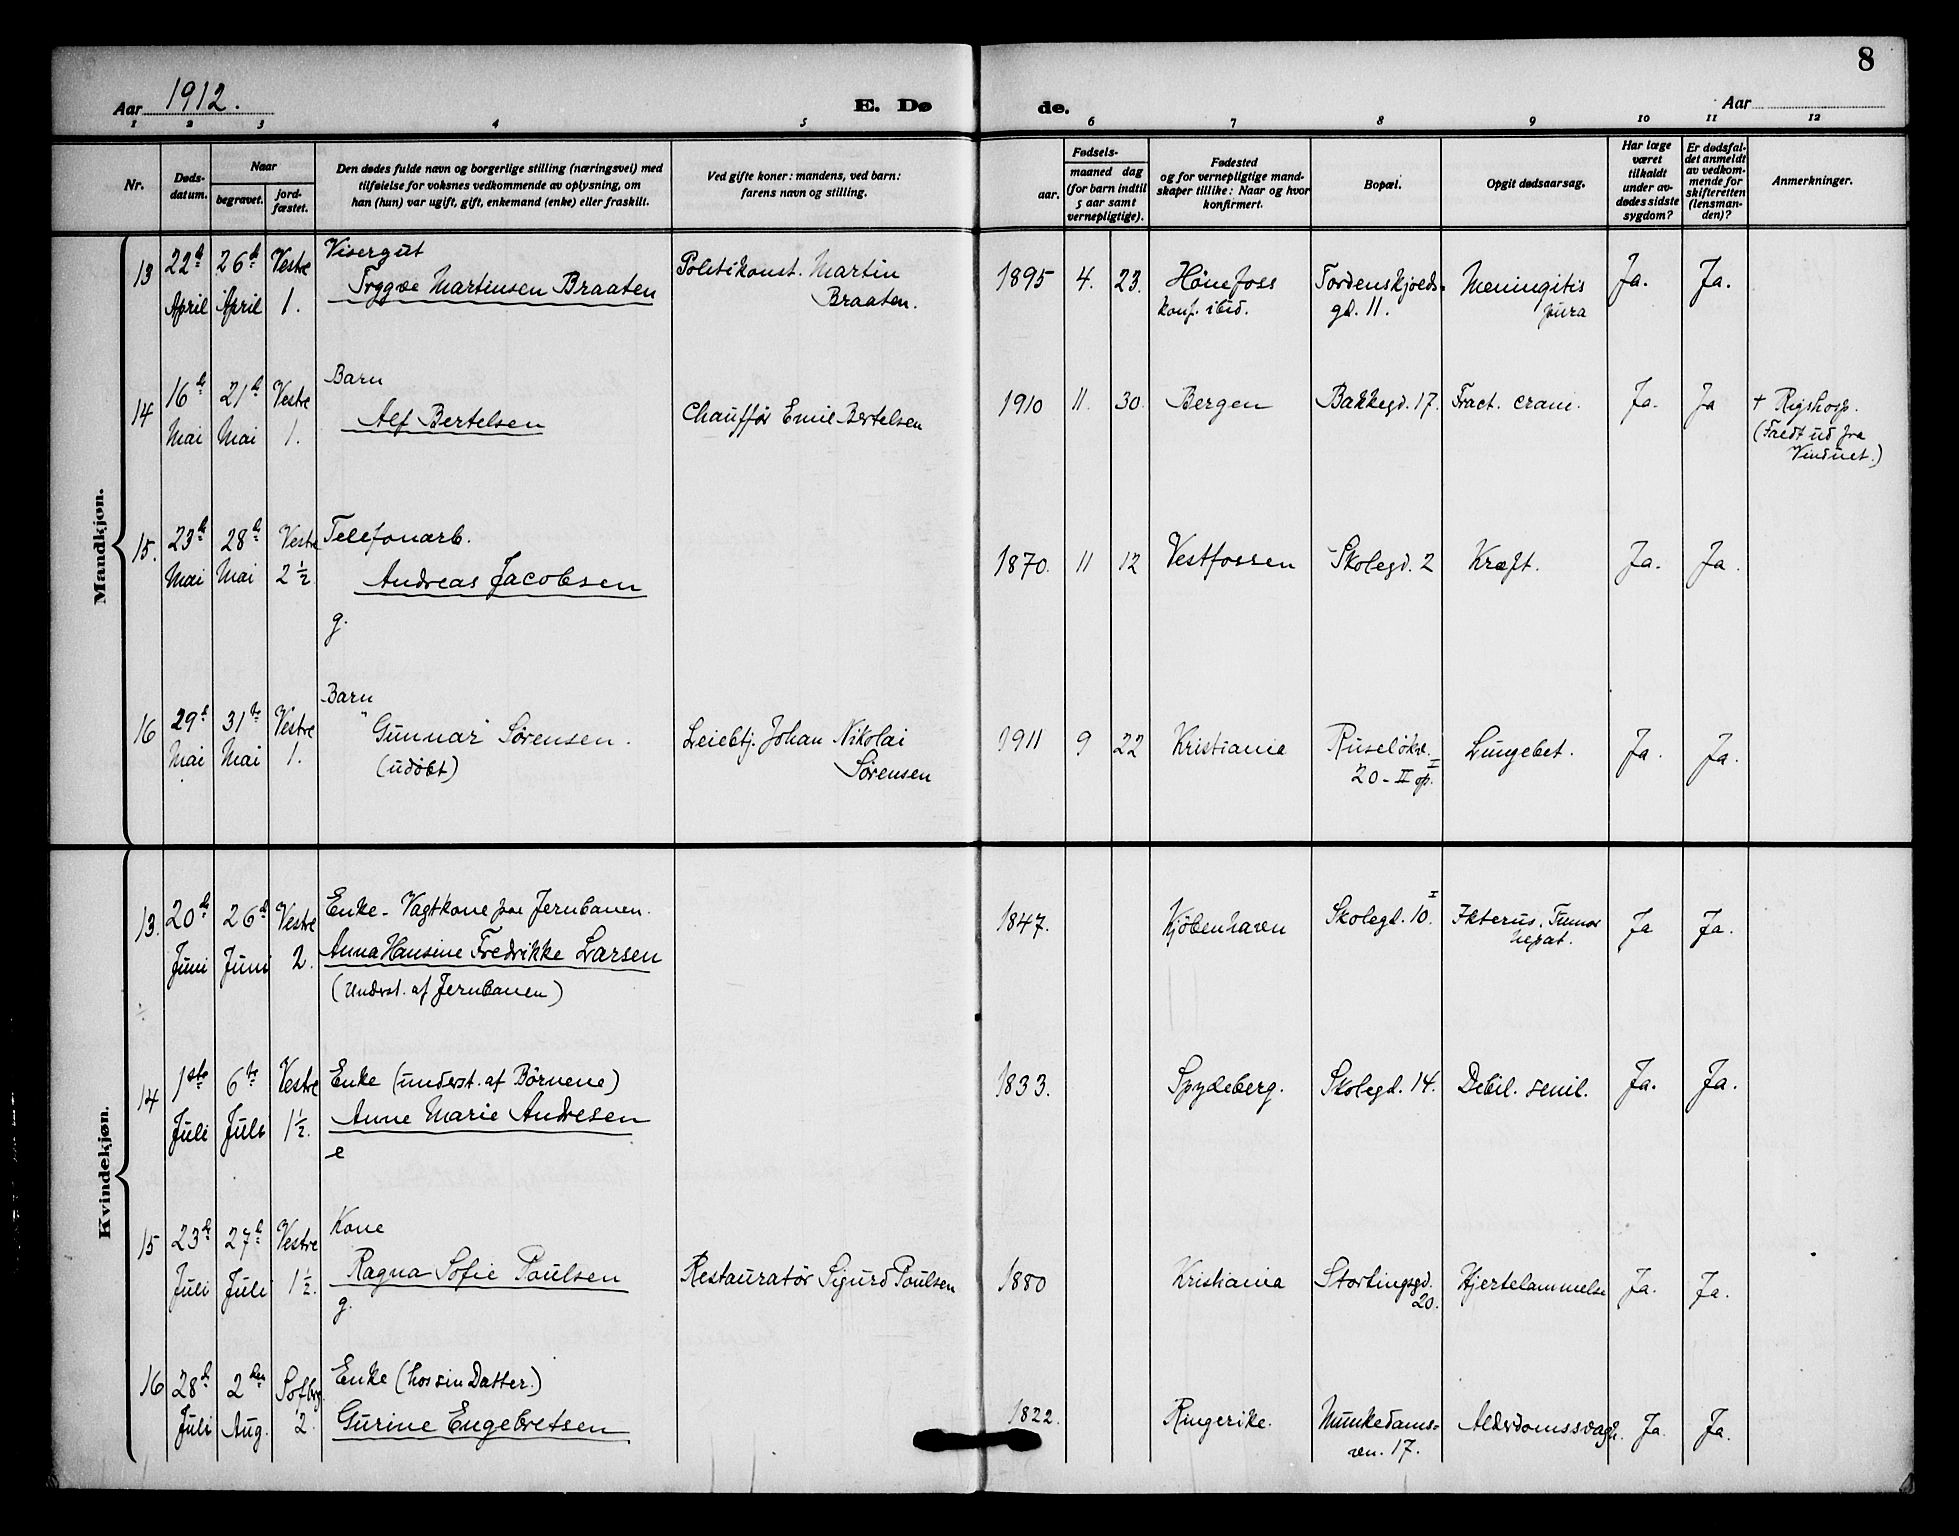 8
Aar 1912.
E. Dø
de.
Aar
1 2 3 4 5 6 7 8 9 10 11 12
Nr.
Døds-
datum.
Naar
begravet.
jord-
fæstet.
Den dødes fulde navn og borgerlige stilling (næringsvei) med
tilføielse for voksnes vedkommende av oplysning, om
han (hun) var ugift, gift, enkemand (enke) eller fraskilt.
Ved gifte koner: mandens, ved barn:
farens navn og stilling.
Fødsels-
aar.
maaned dag
(for barn indtil
5 aar samt
vernepligtige).
Fødested
og for vernepligtige mand-
skaper tillike: Naar og hvor
konfirmert.
Bopæl.
Opgit dødsaarsag.
Har læge
været
tilkaldt
under av-
dødes sidste
sygdom?
Er dødsfal-
det anmeldt
av vedkom-
mende for
skifteretten
(lensman-
den)?
Anmerkninger.
Mandkjøn.
13 22d April 26d April Vestre 1.
Visergut
Tryggve Martinsen Braaten
Politikonst. Martin
Braaten.
1895 4. 23. Hönefoss
konf. ibid.
Tordenskjolds-
gd. 11.
Meningitis
pura
Ja. Ja.
14 16d Mai 21d Mai Vestre 1.
Barn
Alf Bertelsen
Chauffør Emil Bertelsen
1910 11. 30. Bergen Bakkegd. 17. Fract. crani. Ja. Ja
+ Rigshosp.
(Faldt ud fra
Vinduet.)
15. 23d Mai 28d Mai Vestre 2 1/2
Telefonarb.
Andreas Jacobsen
g.
1870. 11 12 Vestfossen Skolegd. 2 Kræft. Ja. Ja.
16 29d Mai 31te Mai Vestre 1.
Barn
Gunnar Sørensen.
(udøbt)
Leiebtj. Johan Nikolai
Sørensen
1911 9 22 Kristiania
Ruseløkv.
20 - II op.
Lungebet. Ja. Ja.
Kvindekjøn.
13. 20de Juni 26d Juni Vestre 2.
Enke - Vagtkone paa Jernbanen.
Anna Hansine Fredrikke Larsen
(Underst. af Jernbanen)
1847. Kjöbenhavn Skolegd. 10. I
Ikterus, Tumor
hepat.
Ja Ja.
14 1ste Juli 6te Juli Vestre 1 1/2.
Enke (underst. af Börnene)
Anne Marie Andresen
e
1833. Spydeberg. Skolegd. 14. Debil. senil. Ja. Ja.
15 23d Juli 27d Juli Vestre 1 1/2.
Kone
Ragna Sofie Poulsen
g.
Restauratør Sigurd Poulsen
1880 Kristiania
Stortingsgd.
20.
Hjertelammelse Ja. Ja.
16 28d Juli 2den Aug. Sofbg. 2.
Enke (hos sin Datter.)
Gurine Engebretsen
1822. Ringerike.
Munkedams-
vn. 17.
Alderdomssvagh. Ja. Ja.